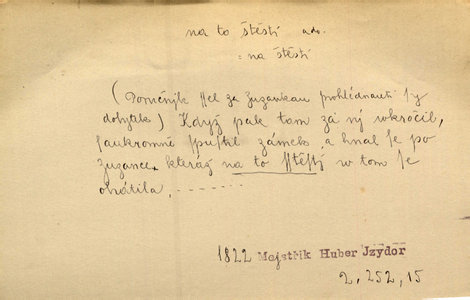 na to štěstí adv.
= na štěstí
(Poměnjk ssel za Zuzankau prohlédnauti sy
dobytek) Když pak tam za nj wkročil,
saukromně spustil zámek, a hnal se po
Zuzance, kteráž na to sstěstj w tom se
obrátila, .......
1822 Mejstřik Huber Jzydor
2, 252, 15